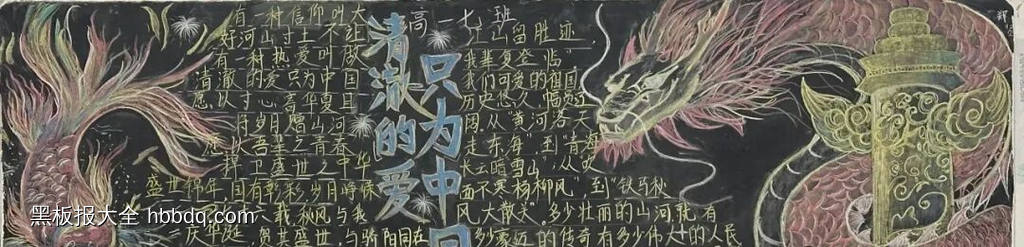 高一七班
清澈的爱
只为中国
有一种信仰叫大
好河山寸土不让
有一种热爱叫做
清澈的爱只为中国
愿以寸心寄华夏且
将岁月赠山河
以吾辈之青春
捍卫盛世之中华
盛世锦年 国有乾彩岁月時候
我秋风与我
庆华庭 贺共盛世 与骄阳同在
江山留胜迹
我辈复登临
我们可爱的祖国
历史悠久,幅员辽
阔。从"黄河落天
走东海"到"青海
长云暗雪山",从"吹
面不寒杨柳风"到"铁马秋
风大散关",多少壮丽的山河就有
多少豪迈的传奇有多少伟大的人民
黑板报大全 hbbdq.com